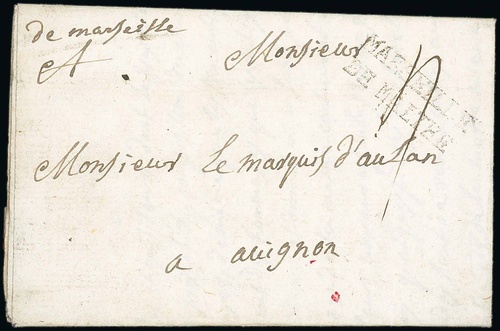 de marseille
A
Monsieur
MARSEILLE
DE MALTHE
Monsieur Le marquis d'aulan
a avignon